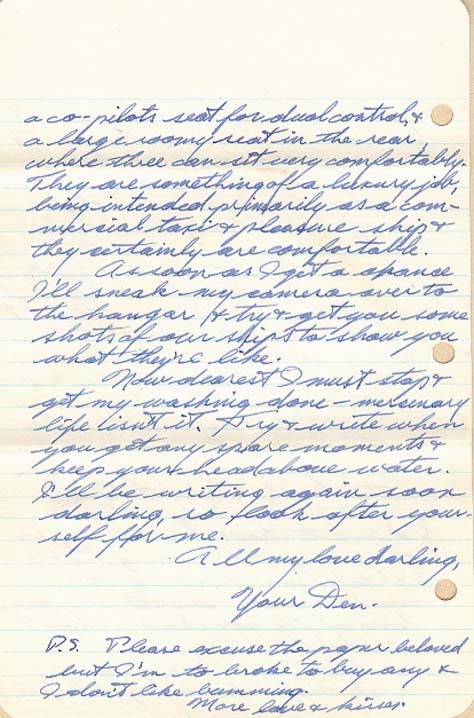 a co-pilots seat for dual control, &
a large roomy seat in the rear,
where three can sit very comfortably.
They are something of a luxury job,
being intended primarily as a com-
mercial taxi & pleasure ship &
they certainly are comfortable.
As soon as I get a chance
I'll sneak my camera over to
the hangar & try & get you some
shots of our ships to show you
what they're like.
Now dearest I must stop &
get my washing done – mercenary
life isn't it. Try & write when
you get any spare moments &
keep your head above water.
I'll be writing again soon
darling, so look after your-
self for me.
All my love darling,
Your Den.
P.S. Please excuse the paper beloved
but I'm to broke to buy any &
I don't like bumming.
More love & kisses.